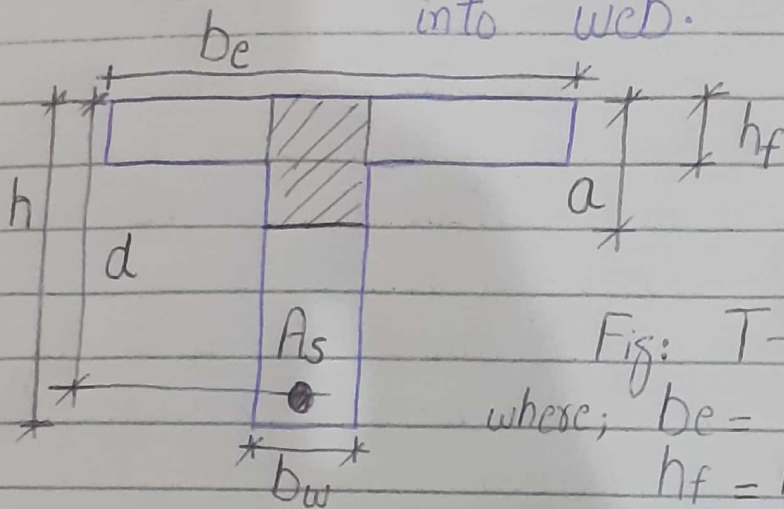 into web.
be
hf
h
a
d
As
Fig: T-
where; be =
hf =
bw